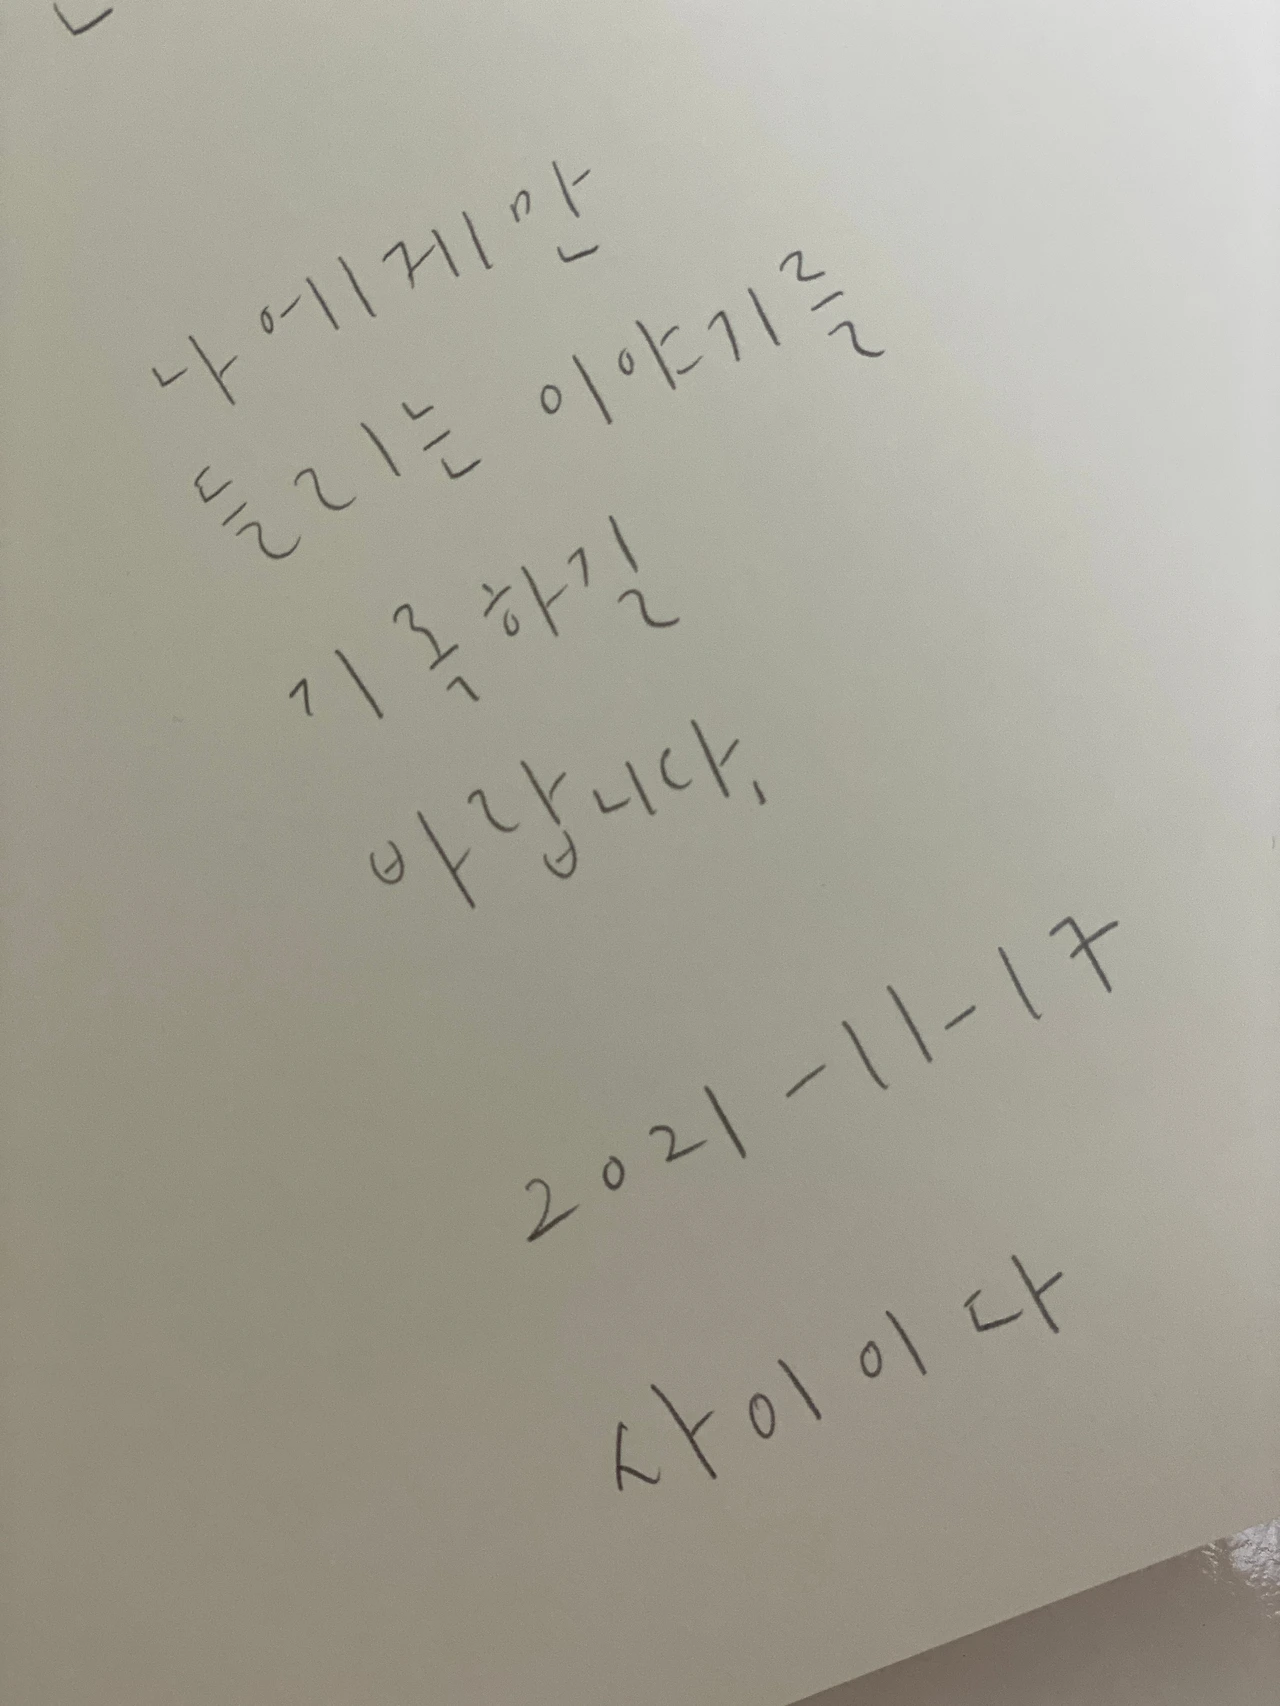 나에게만
들리는 이야기를
기록하길
바랍니다.
2021-11-17
사이이다